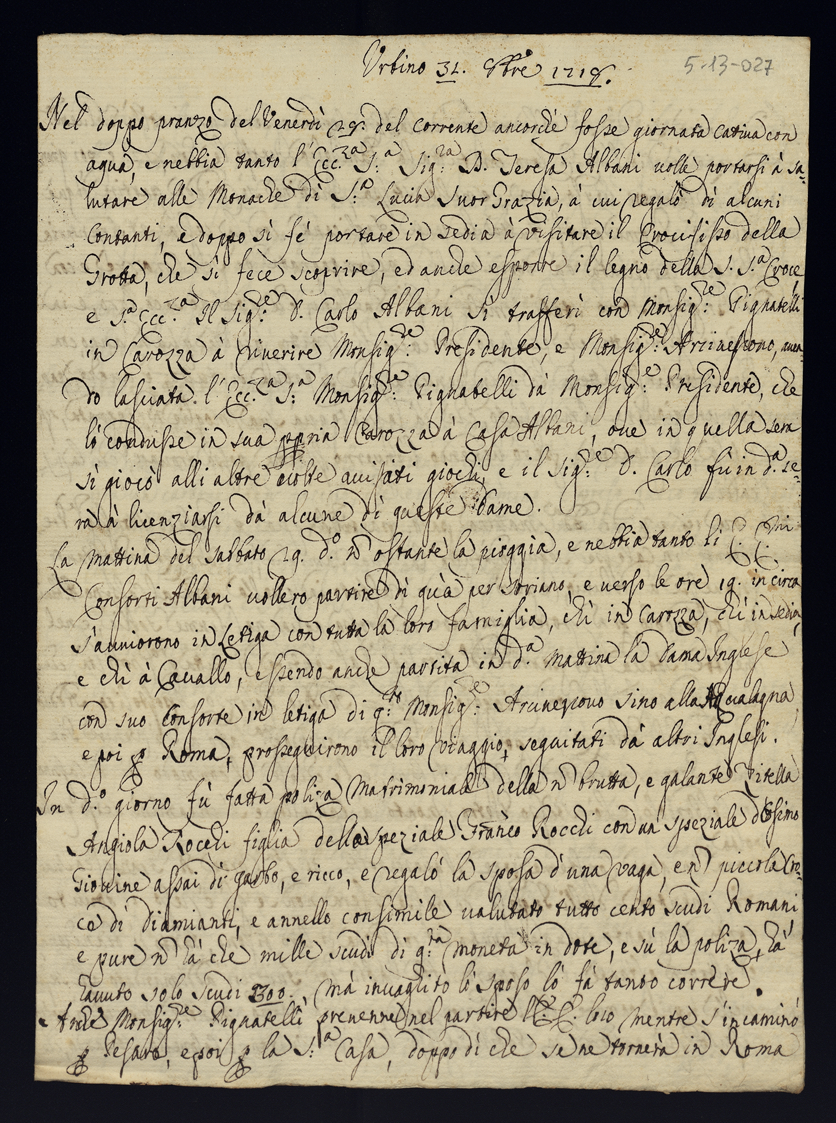 Urbino 31. 8bre 1718.
5-13-027
Nel doppo pranzo del Venerdì 28. del corrente ancorchè fosse giornata cativa con
aqua, e nebbia tanto l'Ecc.za S.a Sig.ra D. Teresa Albani volle portarsi à sa-
lutare alle Monache di S.a Lucia Suor Grazia, à cui regalò di alcuni
contanti, e doppo si fè portare in sedia à visitare il Crocifisso della
Grotta, che si fece scoprire, ed anche esporre il legno della S.S.a Croce
e S.a Ecc.za Il Sig.re D. Carlo Albani si trafferì con Monsig.re Pignatelli
in Carozza à riverire Monsig.re Presidente, e Monsig.re Arcivescovo, aven-
do lasciata l'Ecc.za S.a Monsig.re Pignatelli dà Monsig.re Presidente, che
lò condusse in sua ppria Carozza à Casa Albani, ove in quella sera
si giocò alli altre volte avisati giochi, e il Sig.re D. Carlo fù in d.a se-
ra à licenziarsi dà alcune di queste Dame.
La mattina del sabbato 29. d.o n ostante la pioggia, e nebbia tanto li
Consorti Albani vollero partire di quà per Soriano, e verso le ore 19. in circa
s'avviorono in Letiga con tutta la loro famiglia, chi in Carozza, chi in sedia,
e chi à Cavallo, essendo anche partita in d.a mattina la Dama Inglese
con suo Consorte in letiga di q.to Monsig.re Arcivescovo sino alla Aqualagna,
e poi p Roma, prosseguirono il loro viaggio, seguitati dà altri Inglesi.
In d.o giorno fù fatta poliza Matrimoniale della n brutta, e galante Vitella
Angiola Rocchi figlia dello speziale Franco Rocchi con un speziale d'Osimo
Giovine assai di garbo, e ricco, e regalò la sposa d'una vaga, e n piccola Cro-
ce di Diamanti, e annello consimile valutato tutto cento scudi Romani
e pure n hà che mille scudi di q.ta moneta in dote, e sù la poliza, hà
havuto solo scudi 300. mà invaghito lo sposo lò fà tando correre.
Anche Monsig.re Pignatelli prevenne nel partire loco mentre s'incaminò
p Pesaro, e poi p la S.a Casa, doppo di che se ne tornerà in Roma